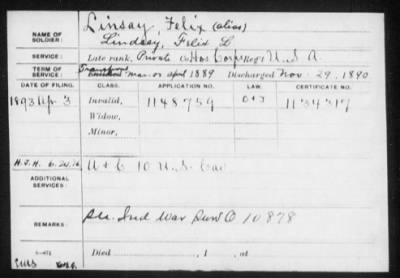 NAME OF SOLDIER: Linsay, Felix (alias)
Lindsey, Felix L
SERVICE: Late rank, Private Co. Hos Corps Reg't U.S.A.
TERM OF SERVICE: Transferred
Enlisted Mar. or April 1889 Discharged Nov. 29, 1890
DATE OF FILING. CLASS. APPLICATION NO. LAW. CERTIFICATE NO.
1893 Ap. 3 Invalid, 1148759 1134317
Widow,
Minor,
H.J.H. 6.24.16 A + C 10 U.S. Cav
ADDITIONAL SERVICES:
REMARKS: Ind War Surv O 10878
Died , 1 , at